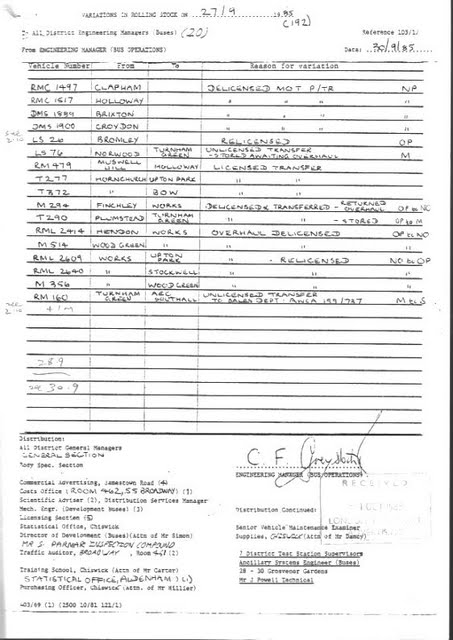 VARIATIONS IN ROLLING STOCK ON 27/9 1985
(192)
To All District Engineering Managers (Buses) (20) Reference 103/1/
From ENGINEERING MANAGER (BUS OPERATIONS) Date: 30/9/85
Vehicle Number From To Reason for variation
RMC 1497 CLAPHAM DELICENSED MOT P/TR NP
RMC 1517 HOLLOWAY " " " "
DMS 1884 BRIXTON " " " "
DMS 1900 CROYDON " " " "
LS 26 BROMLEY RELICENSED OP
LS 76 NORWOOD TURNHAM GREEN UNLICENSED TRANSFER - STORED AWAITING OVERHAUL M
RM 479 MUSWELL HILL HOLLOWAY LICENSED TRANSFER
T277 HORNCHURCH UPTON PARK " "
T372 " BOW " "
M 294 FINCHLEY WORKS DELICENSED & TRANSFERRED - RETURNED OVERHAUL OP to NO
T290 PLUMSTEAD TURNHAM GREEN " " - STORED OP to M
RML 2414 HENDON WORKS OVERHAUL DELICENSED OP to NO
M 514 WOOD GREEN " " " "
RML 2609 WORKS UPTON PARK " - RELICENSED NO to OP
RML 2640 " STOCKWELL " " "
M 356 " WOOD GREEN " " "
RM 160 TURNHAM GREEN AEC SOUTHALL UNLICENSED TRANSFER TO SALES DEPT. 199/737 M to S
28.9
30.9
Distribution:
All District General Managers
GENERAL SECTION
Body Spec. Section
C F
ENGINEERING MANAGER (BUS OPERATIONS)
RECEIVED
Commercial Advertising, Jamestown Road (4)
Costs Office (ROOM 462, 55 BROADWAY) (3)
Scientific Adviser (2), Distribution Services Manager
Mech. Engr. (Development Buses) (3)
Licensing Section (5)
Statistical Office, Chiswick
Director of Development (Buses) (Attn of Mr Simon)
MR S. PARMAR INSPECTION COMPOUND
Traffic Auditor, BROADWAY, Room 41 (2)
Training School, Chiswick (Attn of Mr Carter)
STATISTICAL OFFICE, ALDENHAM (1)
Purchasing Officer, Chiswick (Attn. of Mr Hillier)
Distribution Continued:
Senior Vehicle Maintenance Examiner
Supplies, CHISWICK (Attn of Mr Dancy)
7 District Test Station Supervisors
Ancillary Systems Engineer (Buses)
28 - 30 Grosvenor Gardens
Mr J Powell Technical
403/69 (1) (2500 10/81 121/1)